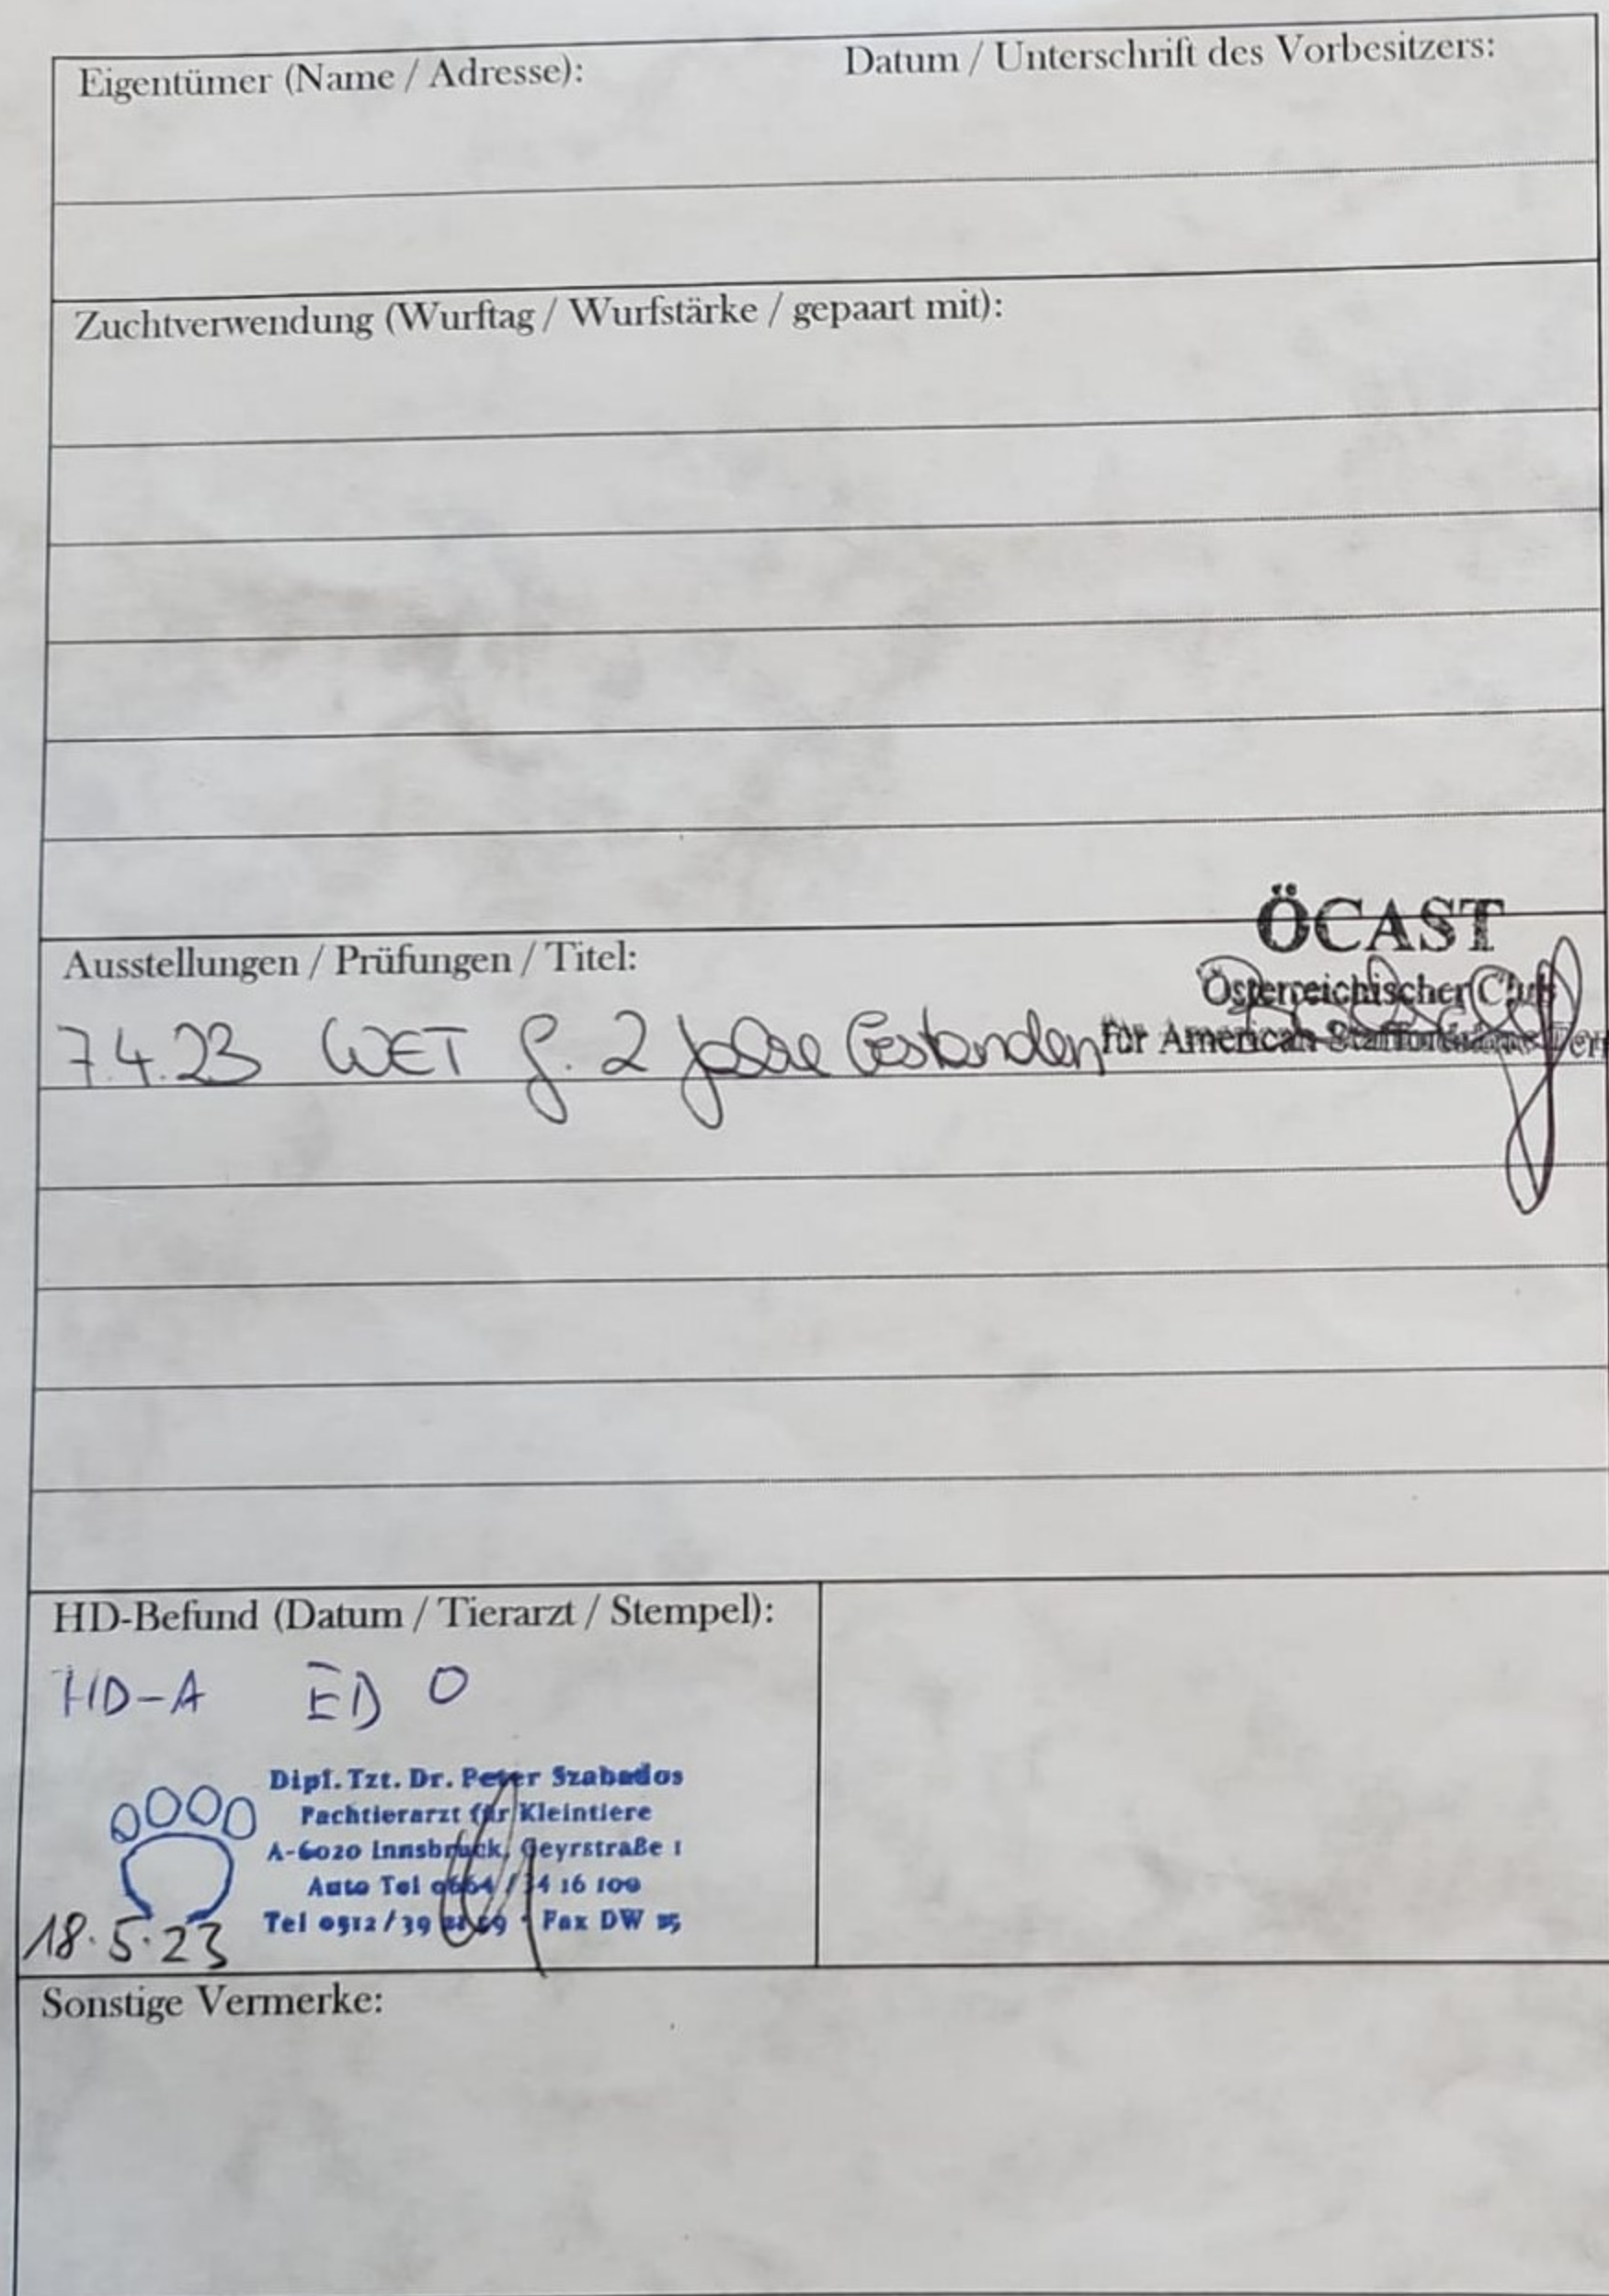 Eigentümer (Name / Adresse): Datum / Unterschrift des Vorbesitzers:
Zuchtverwendung (Wurftag / Wurfstärke / gepaart mit):
ÖCAST
Ausstellungen / Prüfungen / Titel:
Österreichischer Club
7.4.23 WET f. 2 Jahre Bestanden für American Staffordshire Terr
HD-Befund (Datum / Tierarzt / Stempel):
HD-A ED 0
Dipl. Tzt. Dr. Peter Szabados
Fachtierarzt für Kleintiere
A-6020 Innsbruck, Geyrstraße 1
Auto Tel 0664 / 34 16 100
Tel 0512 / 39 69 Fax DW
18.5.23
Sonstige Vermerke: